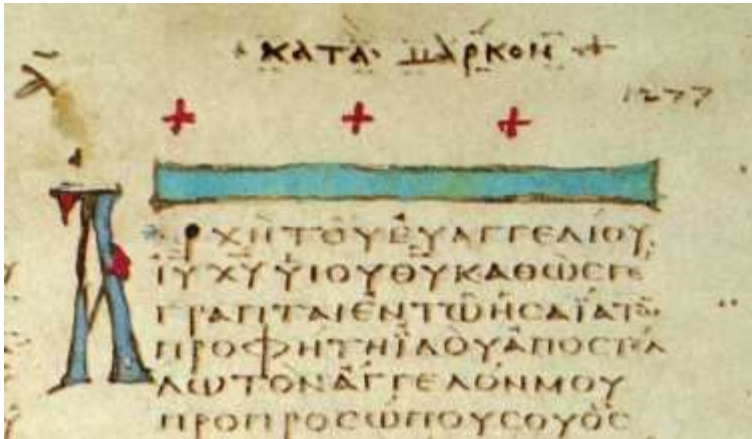 ΚΑΤΑ ΜΑΡΚΟΝ
1277
ΑΡΧΗ ΤΟΥ ΕΥΑΓΓΕΛΙΟΥ
ΙΥ ΧΥ ΥΙΟΥ ΘΥ ΚΑΘΩϹ ΓΕ
ΓΡΑΠΤΑΙ ΕΝ ΤΩ ΗϹΑΙΑ ΤΩ
ΠΡΟΦΗΤΗ ΙΔΟΥ ΑΠΟϹΤΕΛ
ΛΩ ΤΟΝ ΑΓΓΕΛΟΝ ΜΟΥ
ΠΡΟ ΠΡΟϹΩΠΟΥ ϹΟΥ ΟϹ